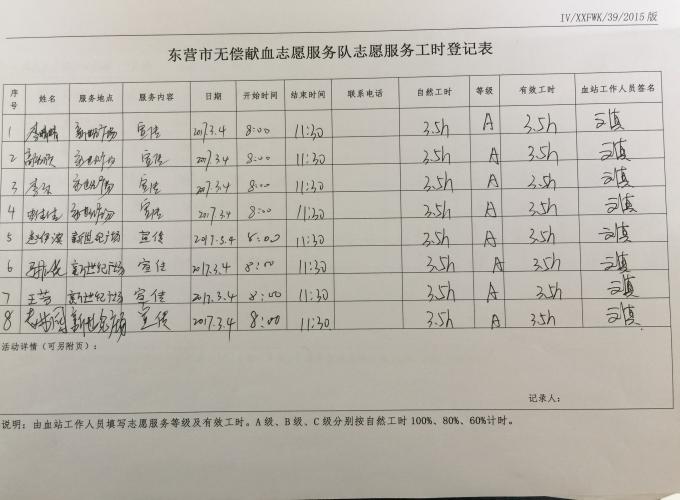 IV/XXFWK/39/2015版
东营市无偿献血志愿服务队志愿服务工时登记表
序号 姓名 服务地点 服务内容 日期 开始时间 结束时间 联系电话 自然工时 等级 有效工时 血站工作人员签名
1 宣传 2017.3.4 8:00 11:30 3.5h A 3.5h
2 宣传 2017.3.4 8:00 11:30 3.5h A 3.5h
3 宣传 2017.3.4 8:00 11:30 3.5h A 3.5h
4 宣传 2017.3.4 8:00 11:30 3.5h A 3.5h
5 新世纪广场 宣传 2017.3.4 8:00 11:30 3.5h A 3.5h
6 新世纪广场 宣传 2017.3.4 8:00 11:30 3.5h A 3.5h
7 王芳 新世纪广场 宣传 2017.3.4 8:00 11:30 3.5h A 3.5h
8 新世纪广场 宣传 2017.3.4 8:00 11:30 3.5h A 3.5h
活动详情（可另附页）：
记录人：
说明：由血站工作人员填写志愿服务等级及有效工时。A级、B级、C级分别按自然工时100%、80%、60%计时。